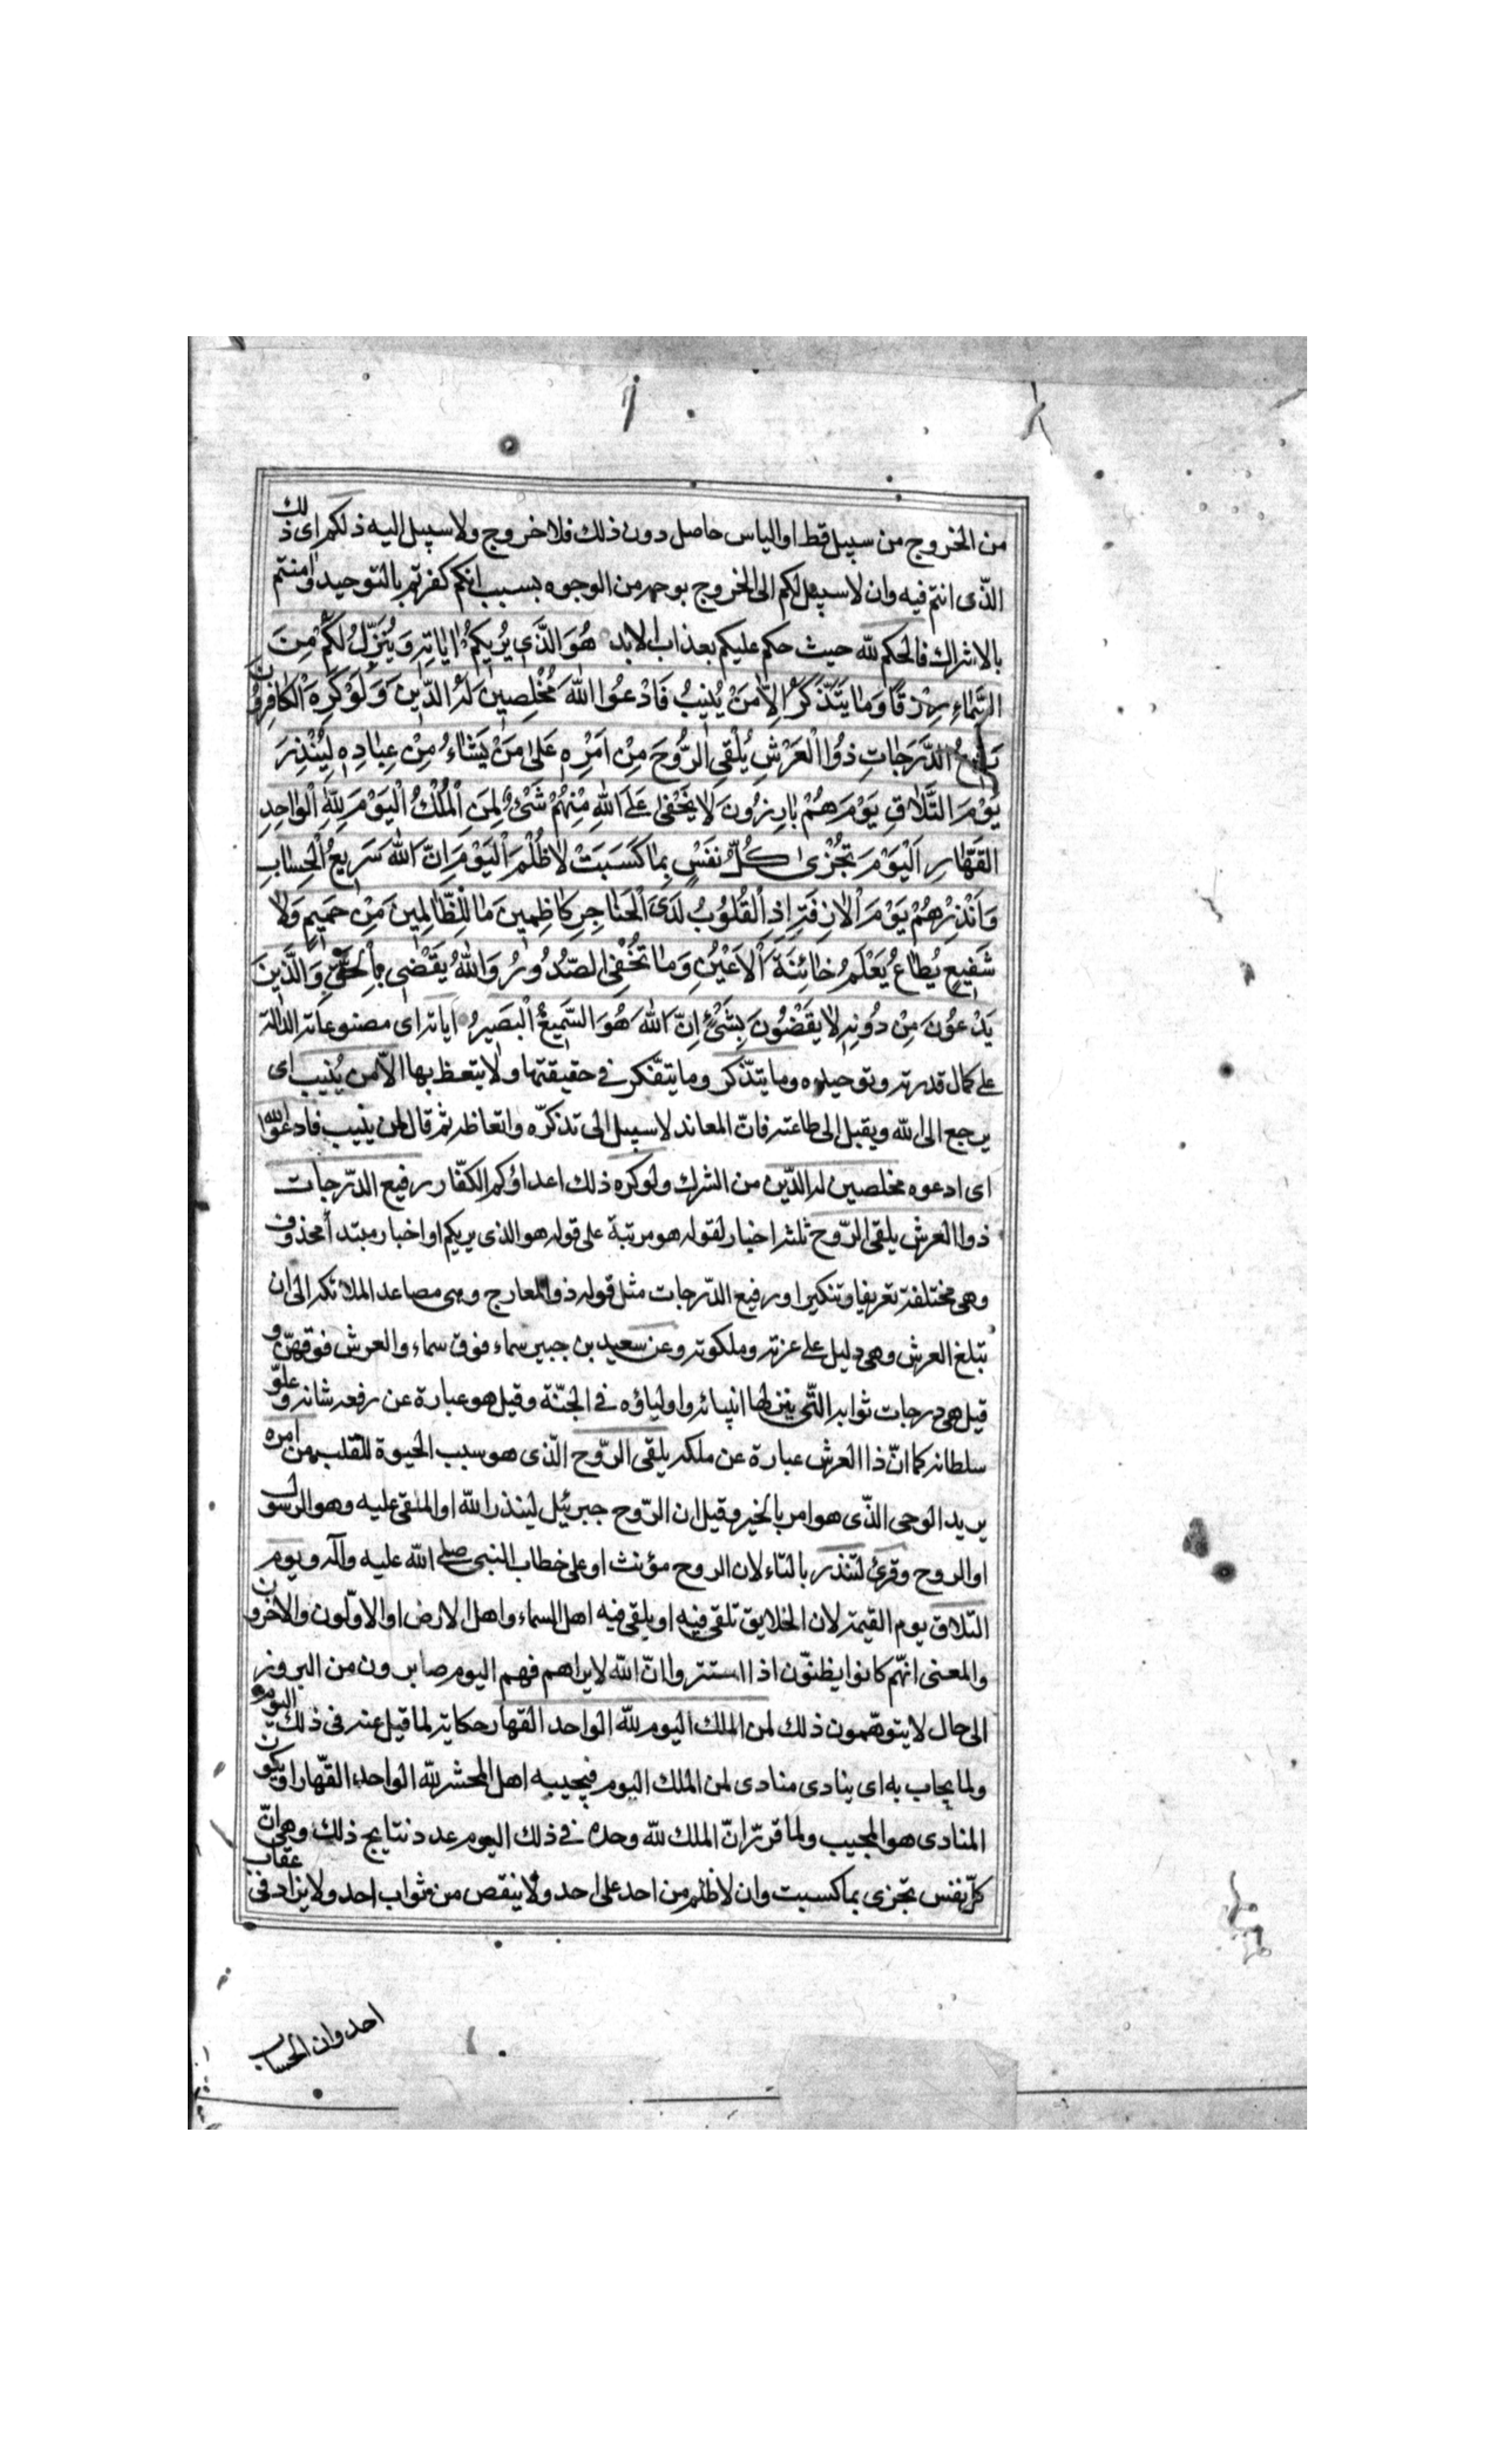 من الخروج من سبيل قط او الياس حاصل دون ذلك فلا خروج ولا سبيل اليه ذلكم اى ذلك
الذّى انتم فيه وان لا سبيل لكم الى الخروج بوجه من الوجوه بسبب انكم كفرتم بالتوحيد وامنتم
بالاشراك فالحكم لله حيث حكم عليكم بعذاب الابد هُوَ الَّذَى يُرِيكُمْ اٰيَاتِهِ وَيُنَزِّلُ لَكُمْ مِنَ
السَّمَاءِ رِزْقًا وَمٰا يَتَذَّكَرُ اِلّاٰ مَنْ يُنِيبُ فَادْعُوا اللّٰهَ مُخْلِصِينَ لَهُ الدّٖينَ وَلَوْ كَرِهَ الْكٰافِرُونَ
رَفِيعُ الدَّرَجٰاتِ ذُوا الْعَرْشِ يُلْقِى الرُّوحَ مِنْ اَمْرِهٖ عَلىٰ مَنْ يَشٰاءُ مِنْ عِبٰادِهٖ لِيُنْذِرَ
يَوْمَ التَّلٰاقِ يَوْمَ هُمْ بٰارِزُونَ لٰا يَخْفىٰ عَلَى اللّٰهِ مِنْهُمْ شَىْءٌ لِمَنِ الْمُلْكُ الْيَوْمَ لِلّٰهِ الْوٰاحِدِ
القَهّٰارِ اَلْيَوْمَ تُجْزىٰ كُلُّ نَفْسٍ بِمٰا كَسَبَتْ لٰا ظُلْمَ اَلْيَوْمَ اِنَّ اللّٰهَ سَرِيعُ الْحِسٰابِ
وَاَنْذِرْهُمْ يَوْمَ اْلاٰزِفَةِ اِذِ الْقُلُوبُ لَدَى الْحَنٰاجِرِ كٰاظِمِينَ مٰا لِلظّٰالِمِينَ مِنْ حَمِيمٍ وَلٰا
شَفِيعٍ يُطٰاعُ يَعْلَمُ خٰائِنَةَ اْلاَعْيُنِ وَمٰا تُخْفِى الصّدُورُ وَاللّٰهُ يَقْضٖى بِالْحَقِّ وَالَّذينَ
يَدْعُونَ مِنْ دُونِهِ لٰا يَقْضُونَ بِشَىْءٍ اِنَّ اللّٰهَ هُوَ السَّمِيعُ الْبَصيرُ اياته اى مصنوعاته الدالة
على كمال قدرته وتوحيده وما يتذّكر وما يتفّكر فى حقيقتها ولا يتعظ بها الّا من يُنيب اى
يرجع الى اللّه ويقبل الى طاعته فانّ المعاند لا سبيل الى تذكرّه واتعاظه ثم قال لمن ينيب فادعوا اللّه
اى ادعوه مخلصين له الدّين من الشرك ولو كره ذلك اعداؤكم الكفّار رفيع الدّرجات
ذوا العرش يلقى الرّوح ثلثه اخبار لقوله هو مرتبة على قوله هو الذى يريكم او اخبار مبتدأ محذوف
وهى مختلفة تعريفا وتنكيرا ورفيع الدّرجات مثل قوله ذو المعارج وهى مصاعد الملائكه الى ان
تبلغ العرش وهى دليل على عزته وملكوته وعن سعيد بن جبير سماء فوق سماء والعرش فوقهنّ و
قيل هى درجات ثوابه التّى ينزلها انبيائه واولياؤه فى الجنّة وقيل هو عبارة عن رفعه شانه وعلوّ
سلطانه كما انّ ذا العرش عبارة عن ملكه يلقى الرّوح الّذى هو سبب الحيوة للقلب من امره
يريد الوحى الذّى هو امر بالخير وقيل ان الرّوح جبرئيل لينذر اللّه او الملقى عليه وهو الرسول
او الروح وقرئ لتنذر بالتاء لان الروح مؤنث او على خطاب النبى صلى اللّه عليه وآله ويوم
التلاق يوم القيمة لان الخلايق تلقى فيه او يلقى فيه اهل السماء واهل الارض او الاوّلون والاخرون
والمعنى انهّم كانوا يظنّون اذا استتروا انّ اللّه لا يراهم فهم اليوم صابرون من البروز
الى حال لا يتوهّمون ذلك لمن الملك اليوم للّه الواحد القهار حكاية لما قيل عنه فى ذلك اليوم
ولما يجاب به اى ينادى منادى لمن الملك اليوم فيجيبه اهل المحشر للّه الواحد القّهار او يكون
المنادى هو المجيب ولما قررّ انّ الملك للّه وحده فى ذلك اليوم عدد نتايج ذلك وهى انّ
كلّ نفس تجزى بما كسبت وان لا ظلم من احد على احد ولا ينقص من ثواب احد ولا يزاد فى عقاب
احد وان الحساب